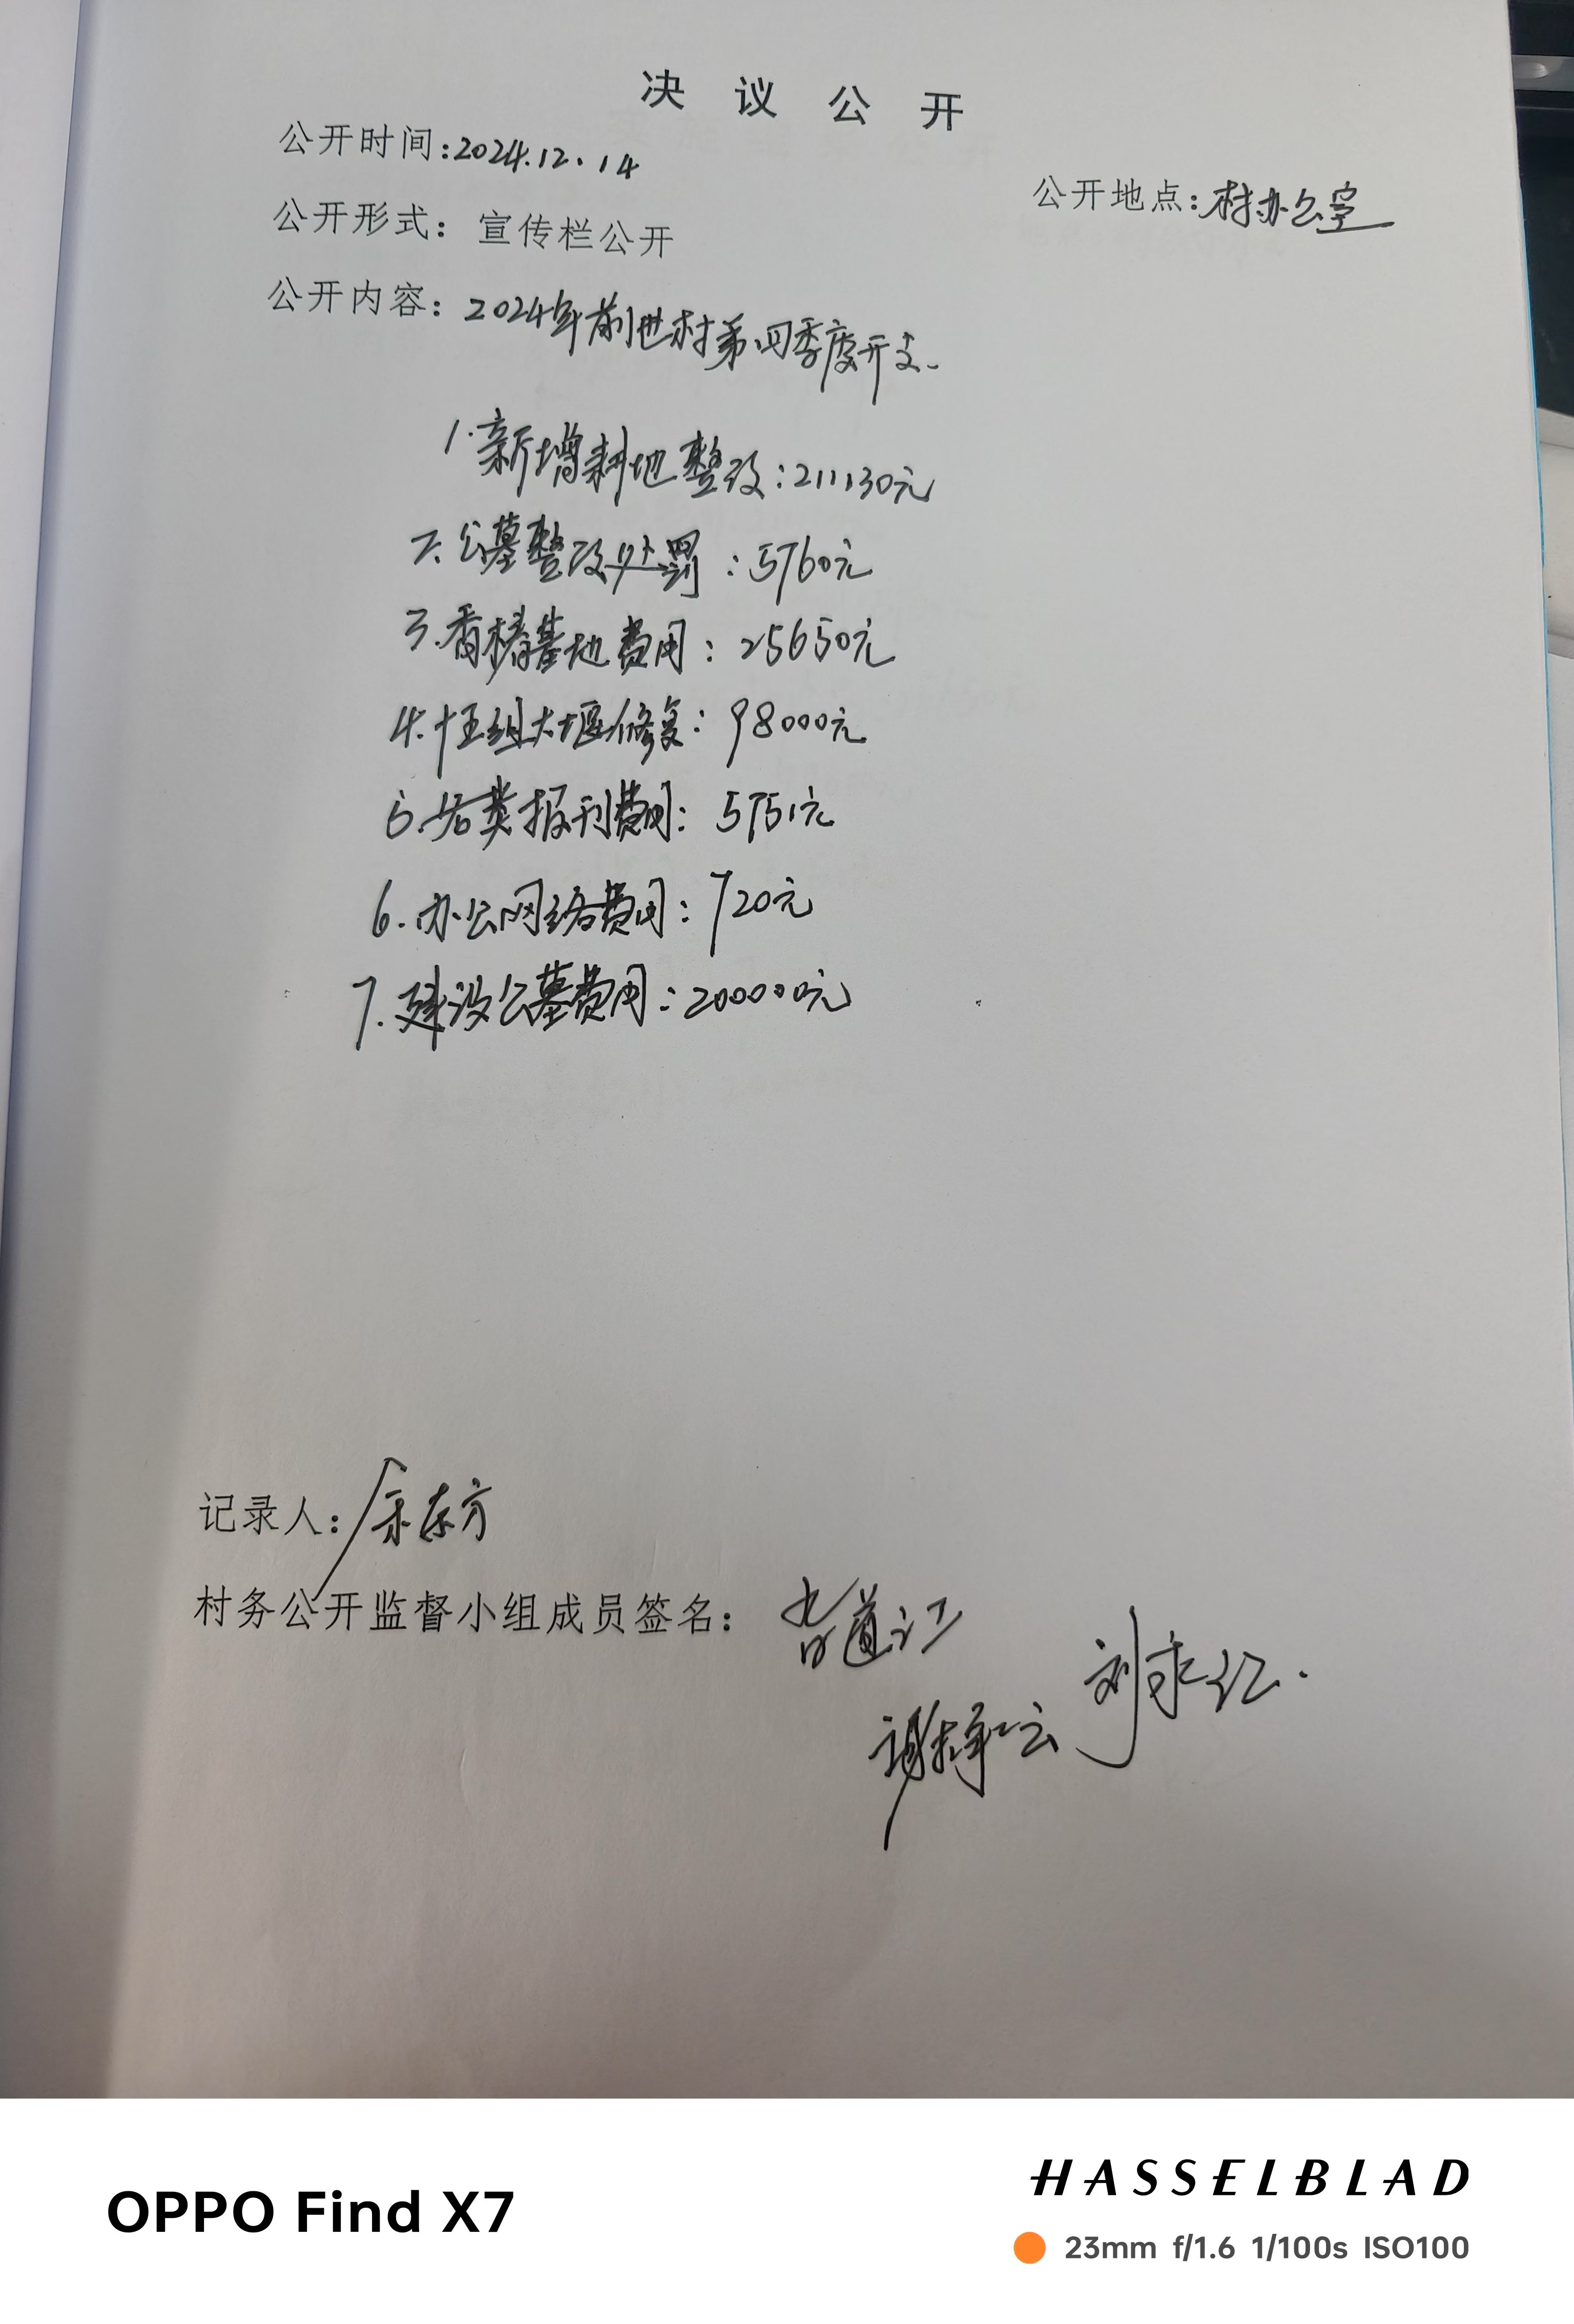 决议公开
公开时间:2024.12.14
公开地点:村办公室
公开形式: 宣传栏公开
公开内容: 2024年前世村第四季度开支.
1.新增耕地整改:211130元
2.公墓整改处罚:5760元
3.香椿基地费用:25650元
4.组大堰修复:98000元
5.各类报刊费用:5751元
6.办公网络费用:720元
7.建设公墓费用:200000元
记录人:余东方
村务公开监督小组成员签名:
道江
刘求红.
谢云
OPPO Find X7
HASSELBLAD
23mm f/1.6 1/100s ISO100